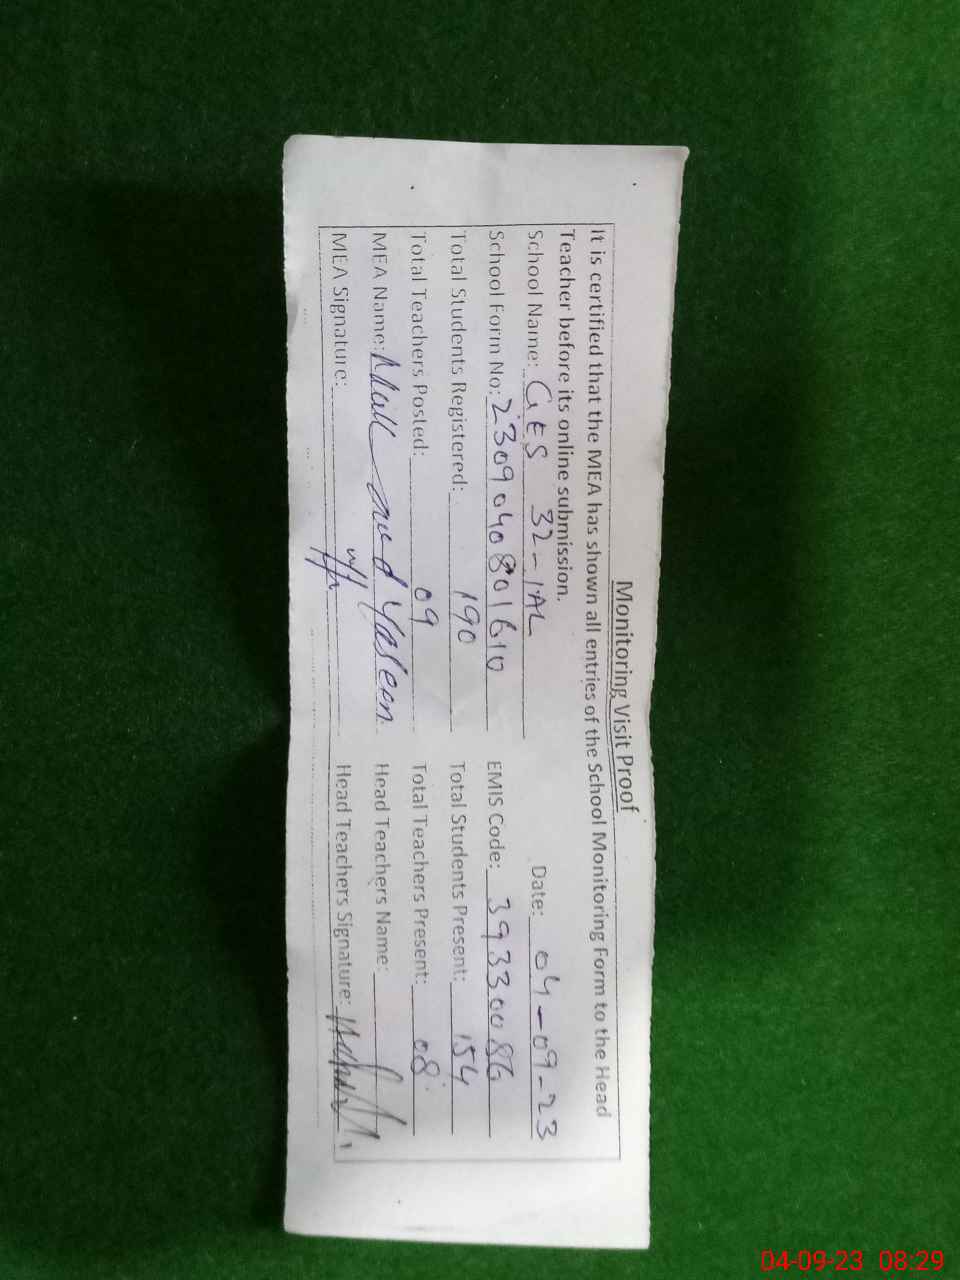 Monitoring Visit Proof
It is certified that the MEA has shown all entries of the School Monitoring Form to the Head
Teacher before its online submission.
School Name: GES 32-1AL Date: 04-09-23
School Form No: 2309040801610 EMIS Code: 39330086
Total Students Registered: 190 Total Students Present: 154
Total Teachers Posted: 09 Total Teachers Present: 08
MEA Name: Yaseen Head Teachers Name:
MEA Signature: Head Teachers Signature:
04-09-23 08:29